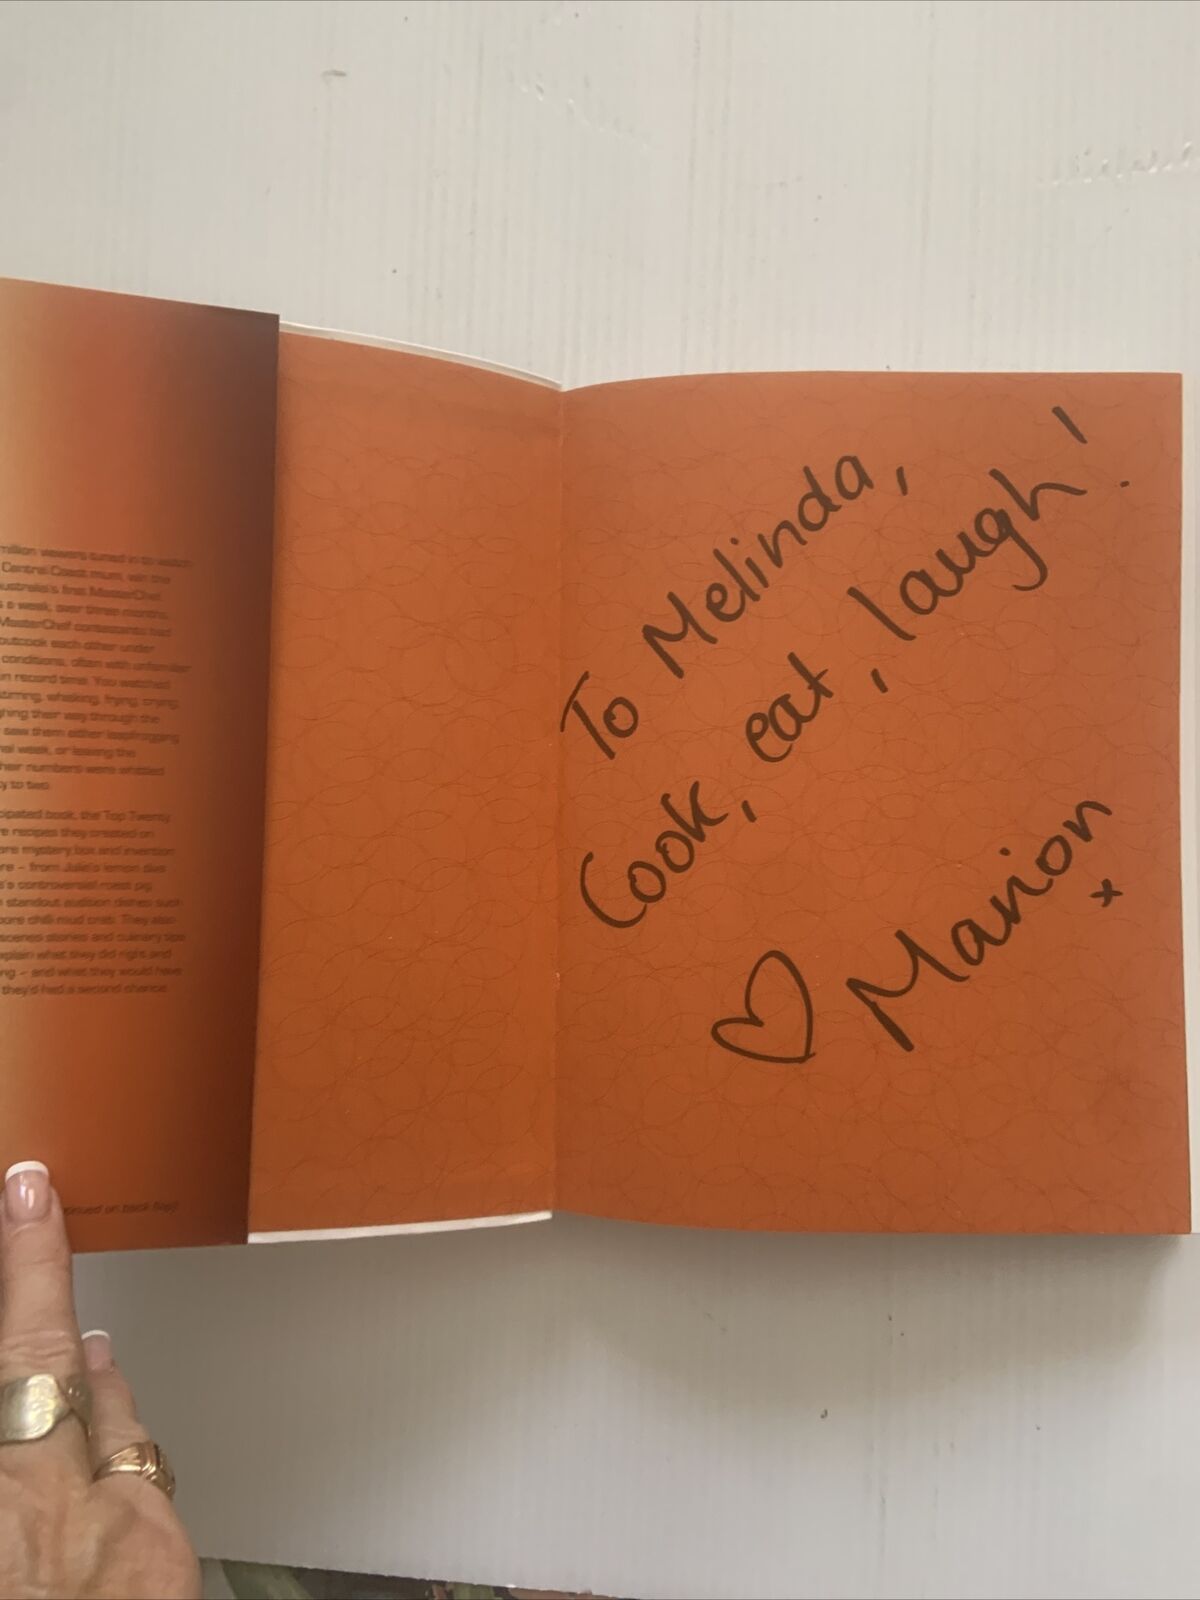 million viewers tuned in to watch
Central Coast mum, win the
ustralia's first MasterChef.
s a week, over three months,
MasterChef contestants had
outcook each other under
conditions, often with unfamiliar
in record time. You watched
stirring, whisking, frying, crying
ghing their way through the
saw them either leapfrogging
nal week, or leaving the
heir numbers were whittled
ty to two.
cipated book, the Top Twenty
e recipes they created on
ore mystery box and invention
re – from Julie's lemon diva
's controversial roast pig,
standout audition dishes such
pore chilli mud crab. They also
scenes stories and culinary tips
xplain what they did right and
ng – and what they would have
they'd had a second chance.
tinued on back flap)
To Melinda,
Cook, eat, laugh!
♡ Marion
x